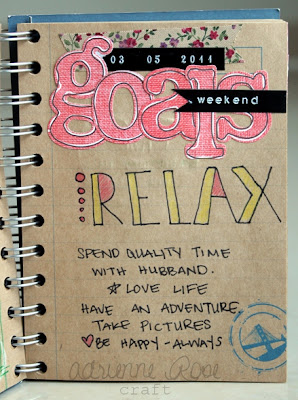 03 05 2011
goals
weekend
RELAX
SPEND QUALITY TIME
WITH HUBBAND.
& LOVE LIFE
HAVE AN ADVENTURE
TAKE PICTURES
♥BE HAPPY-ALWAYS
adrienne Rose
craft